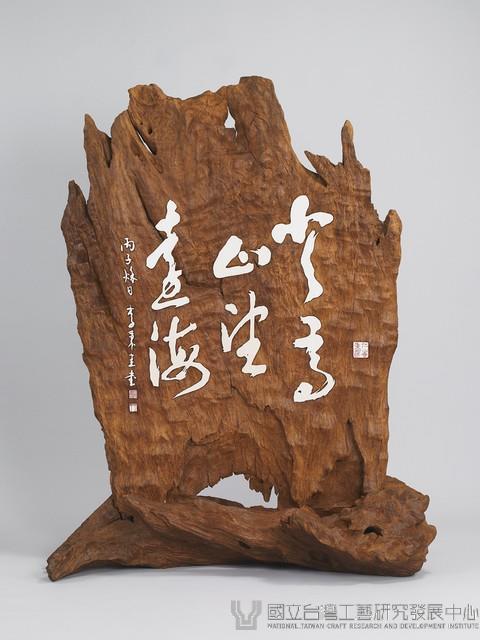 登高
山望
遠海
丙子秌日 李秉圭書
國立台灣工藝研究發展中心
NATIONAL TAIWAN CRAFT RESEARCH AND DEVELOPMENT INSTITUTE